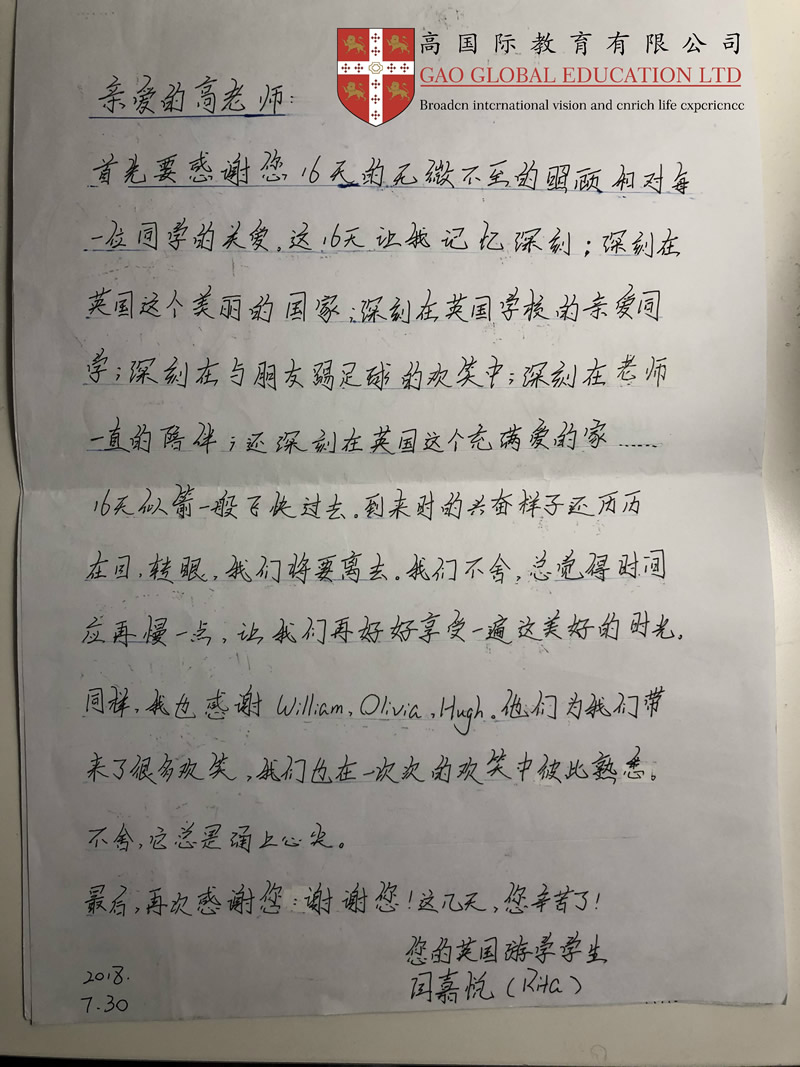 高国际教育有限公司
GAO GLOBAL EDUCATION LTD
Broaden international vision and enrich life experience
亲爱的高老师:
首先要感谢您16天的无微不至的照顾和对每
一位同学的关爱。这16天让我记忆深刻;深刻在
英国这个美丽的国家;深刻在英国学校的亲爱同
学;深刻在与朋友踢足球的欢笑中;深刻在老师
一直的陪伴;还深刻在英国这个充满爱的家……
16天似箭一般飞快过去。到来时的兴奋样子还历历
在目,转眼,我们将要离去。我们不舍,总觉得时间
应再慢一点,让我们再好好享受一遍这美好的时光。
同样,我也感谢William,Olivia,Hugh。他们为我们带
来了很多欢笑,我们也在一次次的欢笑中彼此熟悉。
不舍,它总是涌上心尖。
最后,再次感谢您:谢谢您!这几天,您辛苦了!
您的英国游学学生
闫嘉悦(Rita)
2018.
7.30